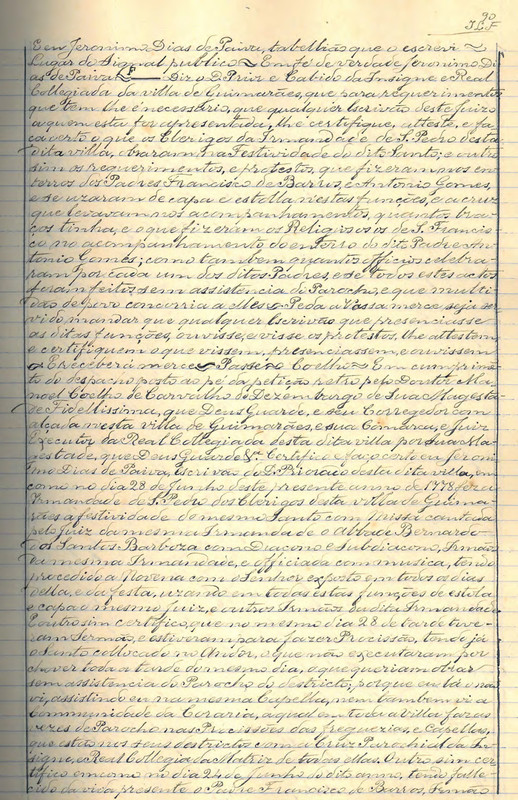 90
E eu Jeronimo Dias de Paiva, tabellião que o escrevi ~
Lugar do signal publico ~ Em fé de verdade Jeronimo Di
as de Paiva. Diz o D. Prior e Cabido da Insigne e Real
Collegiada da villa de Guimarães, que para requerimentos
que tem lhe é necessario, que qualquer Escrivão deste juizo
a quem esta for apresentada, lhe certifique, atteste, e fa
ça certo o que os Clerigos da Irmandade de S. Pedro desta
dita villa, obraram na Festividade do dito Santo; e outro
sim os requerimentos, e protestos, que fizeram nos en
terros dos Padres Francisco de Barros, e Antonio Gomes,
e se uzaram de capa e estolla n'estas funções, e a cruz
que levavam nos acompanhamentos, quantos bra
ços tinha, e o que fizeram os Religiosos de S. Francis
co no acompanhamento do enterro do dito Padre An
tonio Gomes; como tambem quantos officios celebra
ram por cada um dos ditos Padres, e se todos estes actos
foram feitos sem assistencia do Parocho, e que multi
dão de povo concorria a elles. Pede a Vossa merce seja ser
vido mandar que qualquer Escrivão que presenciasse
as ditas funções, ouvisse, e visse os protestos, lhe attestem,
e certifiquem o que vissem, presenciassem, e ouvissem
~ E receberá merce ~ Passe ~ Coelho ~ Em cumprimen
to do despacho posto ao pé da petição retro pelo Doutor Ma
noel Coelho de Carvalho do Dezembargo de Sua Magesta
de Fidellissima, que Deus Guarde, e seu Corregedor com
alçada nesta villa de Guimarães, e sua Comarca, e juiz
Executor da Real Collegiada desta dita villa por sua Ma
gestade, que Deus Guarde Certifico e faço certo eu Jeroni
mo Dias de Paiva, Escrivão do D. Priorado desta dita villa, em
como no dia 28 de Junho deste presente anno de 1778 fez a
Irmandade de S. Pedro dos Clerigos desta villa de Guima
rães a festividade do mesmo Santo com Missa cantada
pelo juiz da mesma Irmandade o Abbade Bernardo
dos Santos Barboza com Diacono e Subdiacono, Irmãos
da mesma Irmandade, e officiada com musica, tendo
procedido a Novena com o Senhor exposto em todos os dias
della, e da festa, uzando em todas estas funções de estola
e capa o mesmo juiz, e outros Irmãos da dita Irmandade
E outro sim certifico, que no mesmo dia 28 de tarde tive
ram Sermão, e estiveram para fazer Procissão, tendo já
o Santo collocado no Andor, e que não executaram por
chover toda a tarde do mesmo dia, o que queriam obrar
sem assistencia do Parocho do destricto, porque eu lá o não
vi, assistindo eu na mesma Capella, nem tambem vi a
Communidade da Coraria, a qual em toda a Villa faz as
vezes de Parocho nas Procissões das freguezias, e Capellas,
que estão nos seus destrictos com a Cruz Parochial da In
signe, e Real Collegiada da Matriz de todas ellas. Outro sim cer
tifico em como no dia 24 de Junho do dito anno, tendo falle
cido da vida presente o Padre Francisco de Barros, Irmão